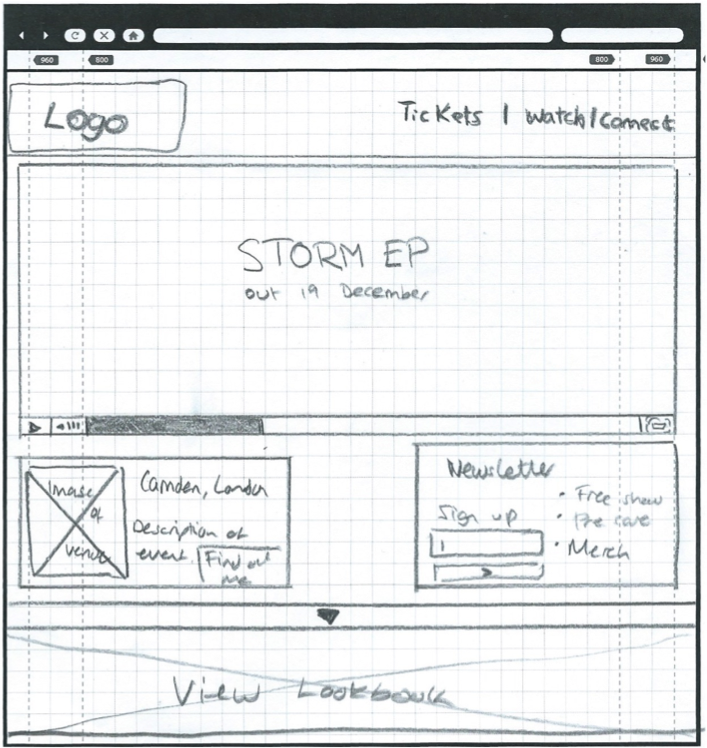 960 800 800 960
Logo
Tickets | Watch | Connect
STORM EP
out 19 December
Image
of
venue
Camden, London
Description of
event
Find out
me
Newsletter
Sign up
• Free show
• Pre
• Merch
View Lookbook